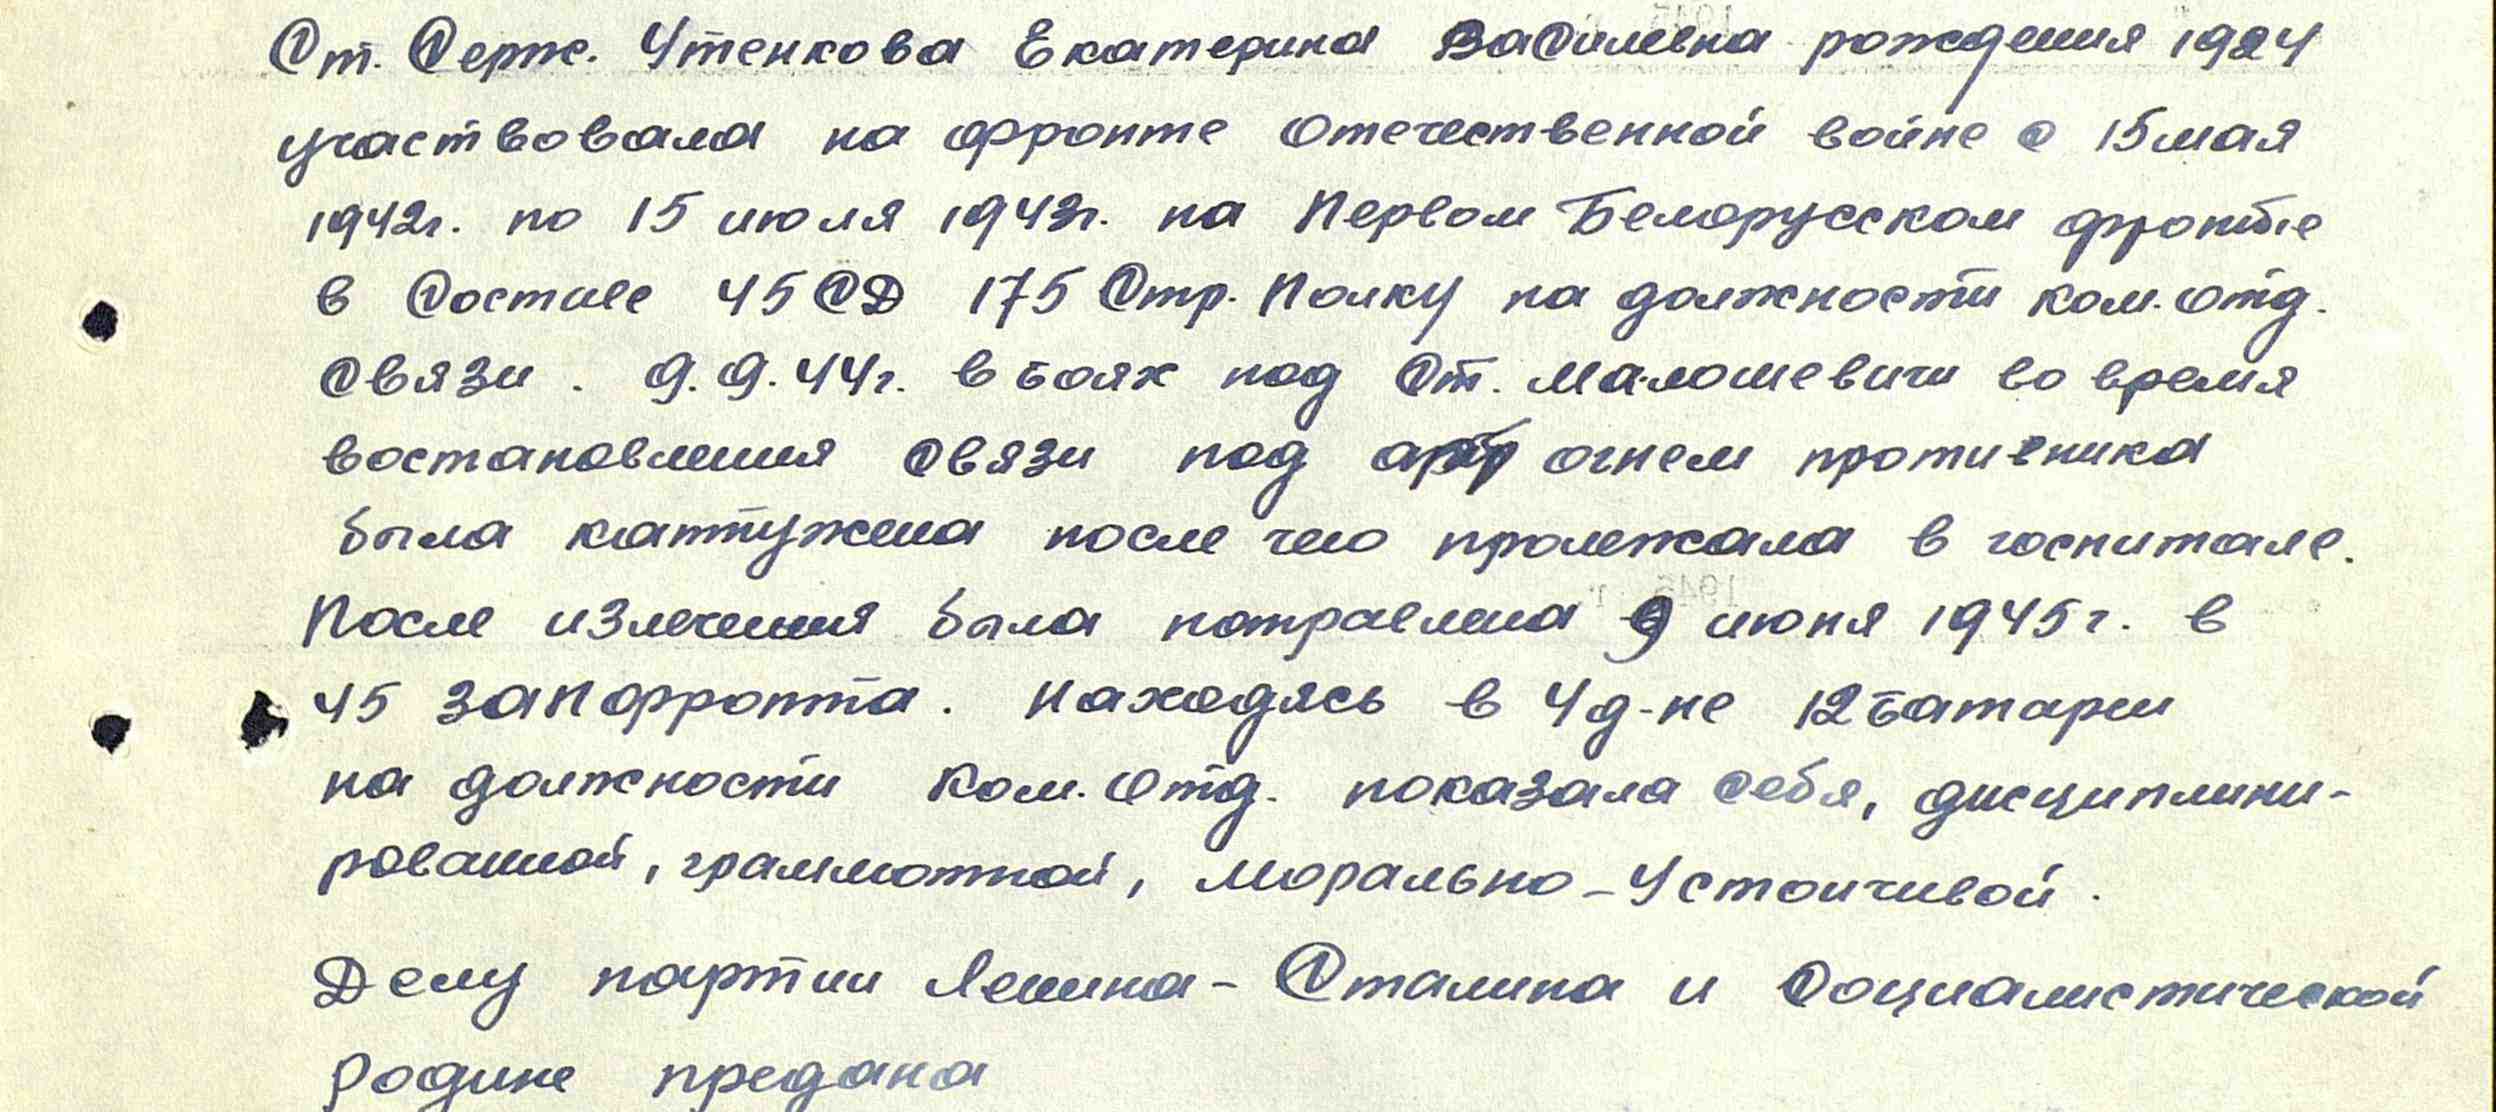 Ст. Серж. Утенкова Екатерина Василевна рождения 1924
участвовала на фрронте Отечественной войне с 15 мая
1942г. по 15 июля 1943г. на Первом Белорусском фронте
в Составе 45 СД 175 Стр. Полку на должности ком. отд.
Связи. 9.9.44г. в боях под Ст. Малошевичи во время
востановления Связи под арт огнем противника
была контужена после чего пролежала в госпитале.
После излечения была направлена 9 июня 1945г. в
45 ЗАП фрронта. Находясь в 4 д-не 12 батареи
на должности Ком. Отд. показала Себя, дисциплини-
рованной, граммотной, морально-Устоичивой.
Делу партии Ленина-Сталина и Социалистической
Родине предана